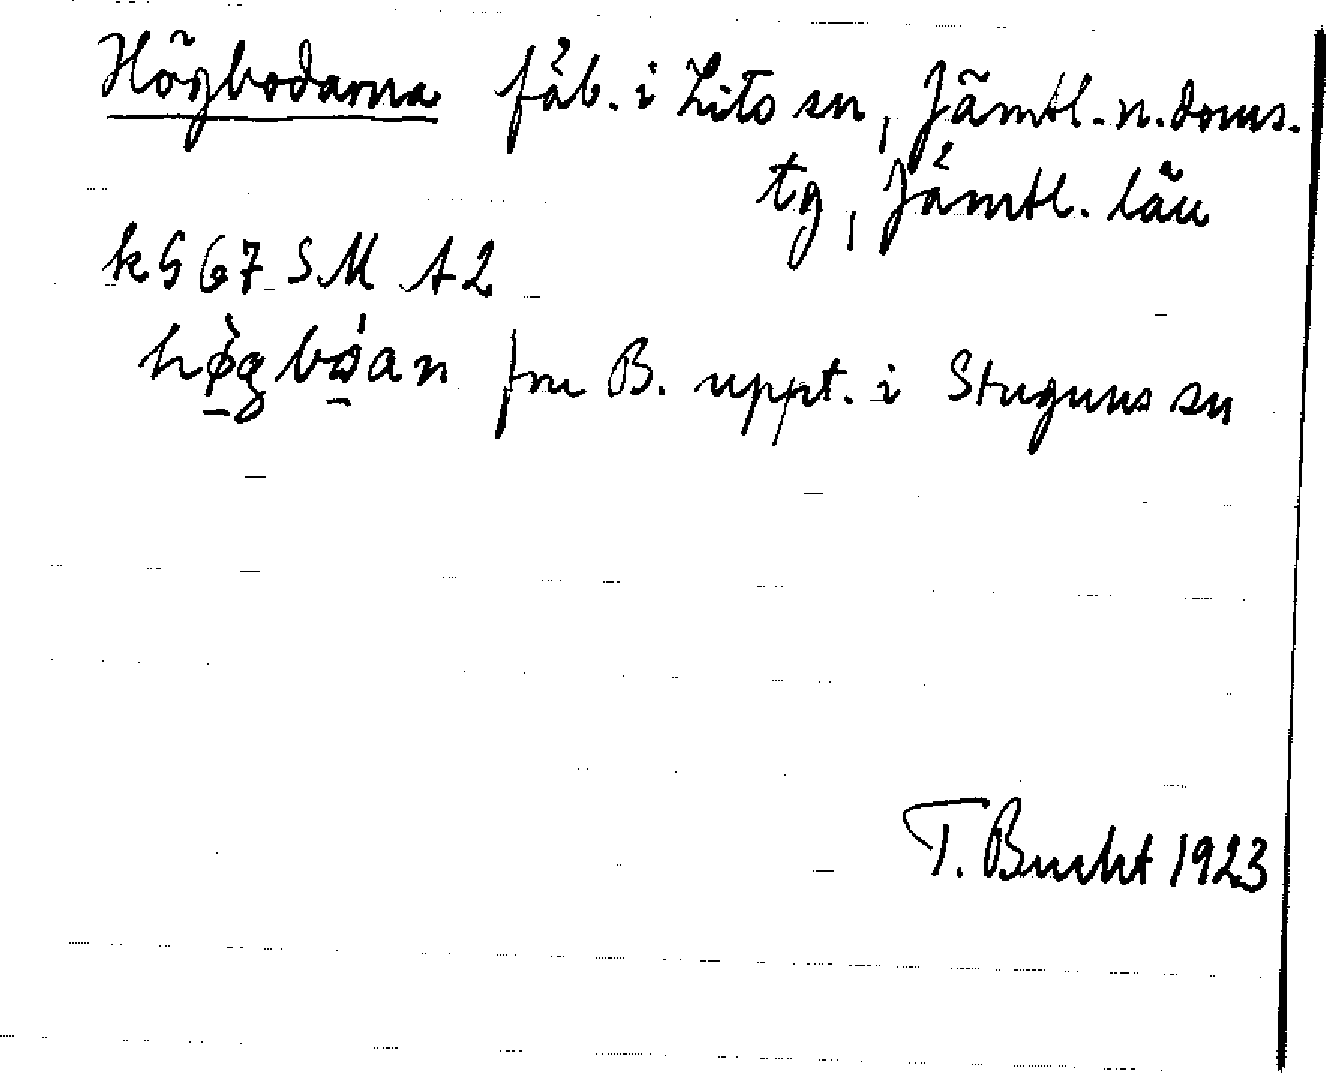 Högbodarna fäb. i Lits sn, Jämtl. n. doms.
tg, Jämtl. län
k G 67 SM A2
hø̀g bøan fm B. uppt. i Stuguns sn
T. Bucht 1923